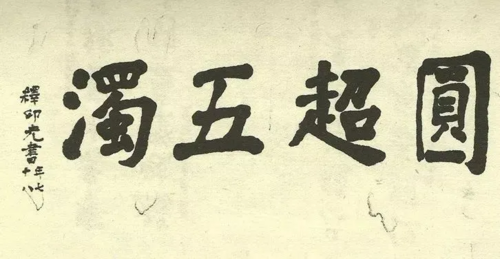 圓超五濁
釋印光書
年七十八